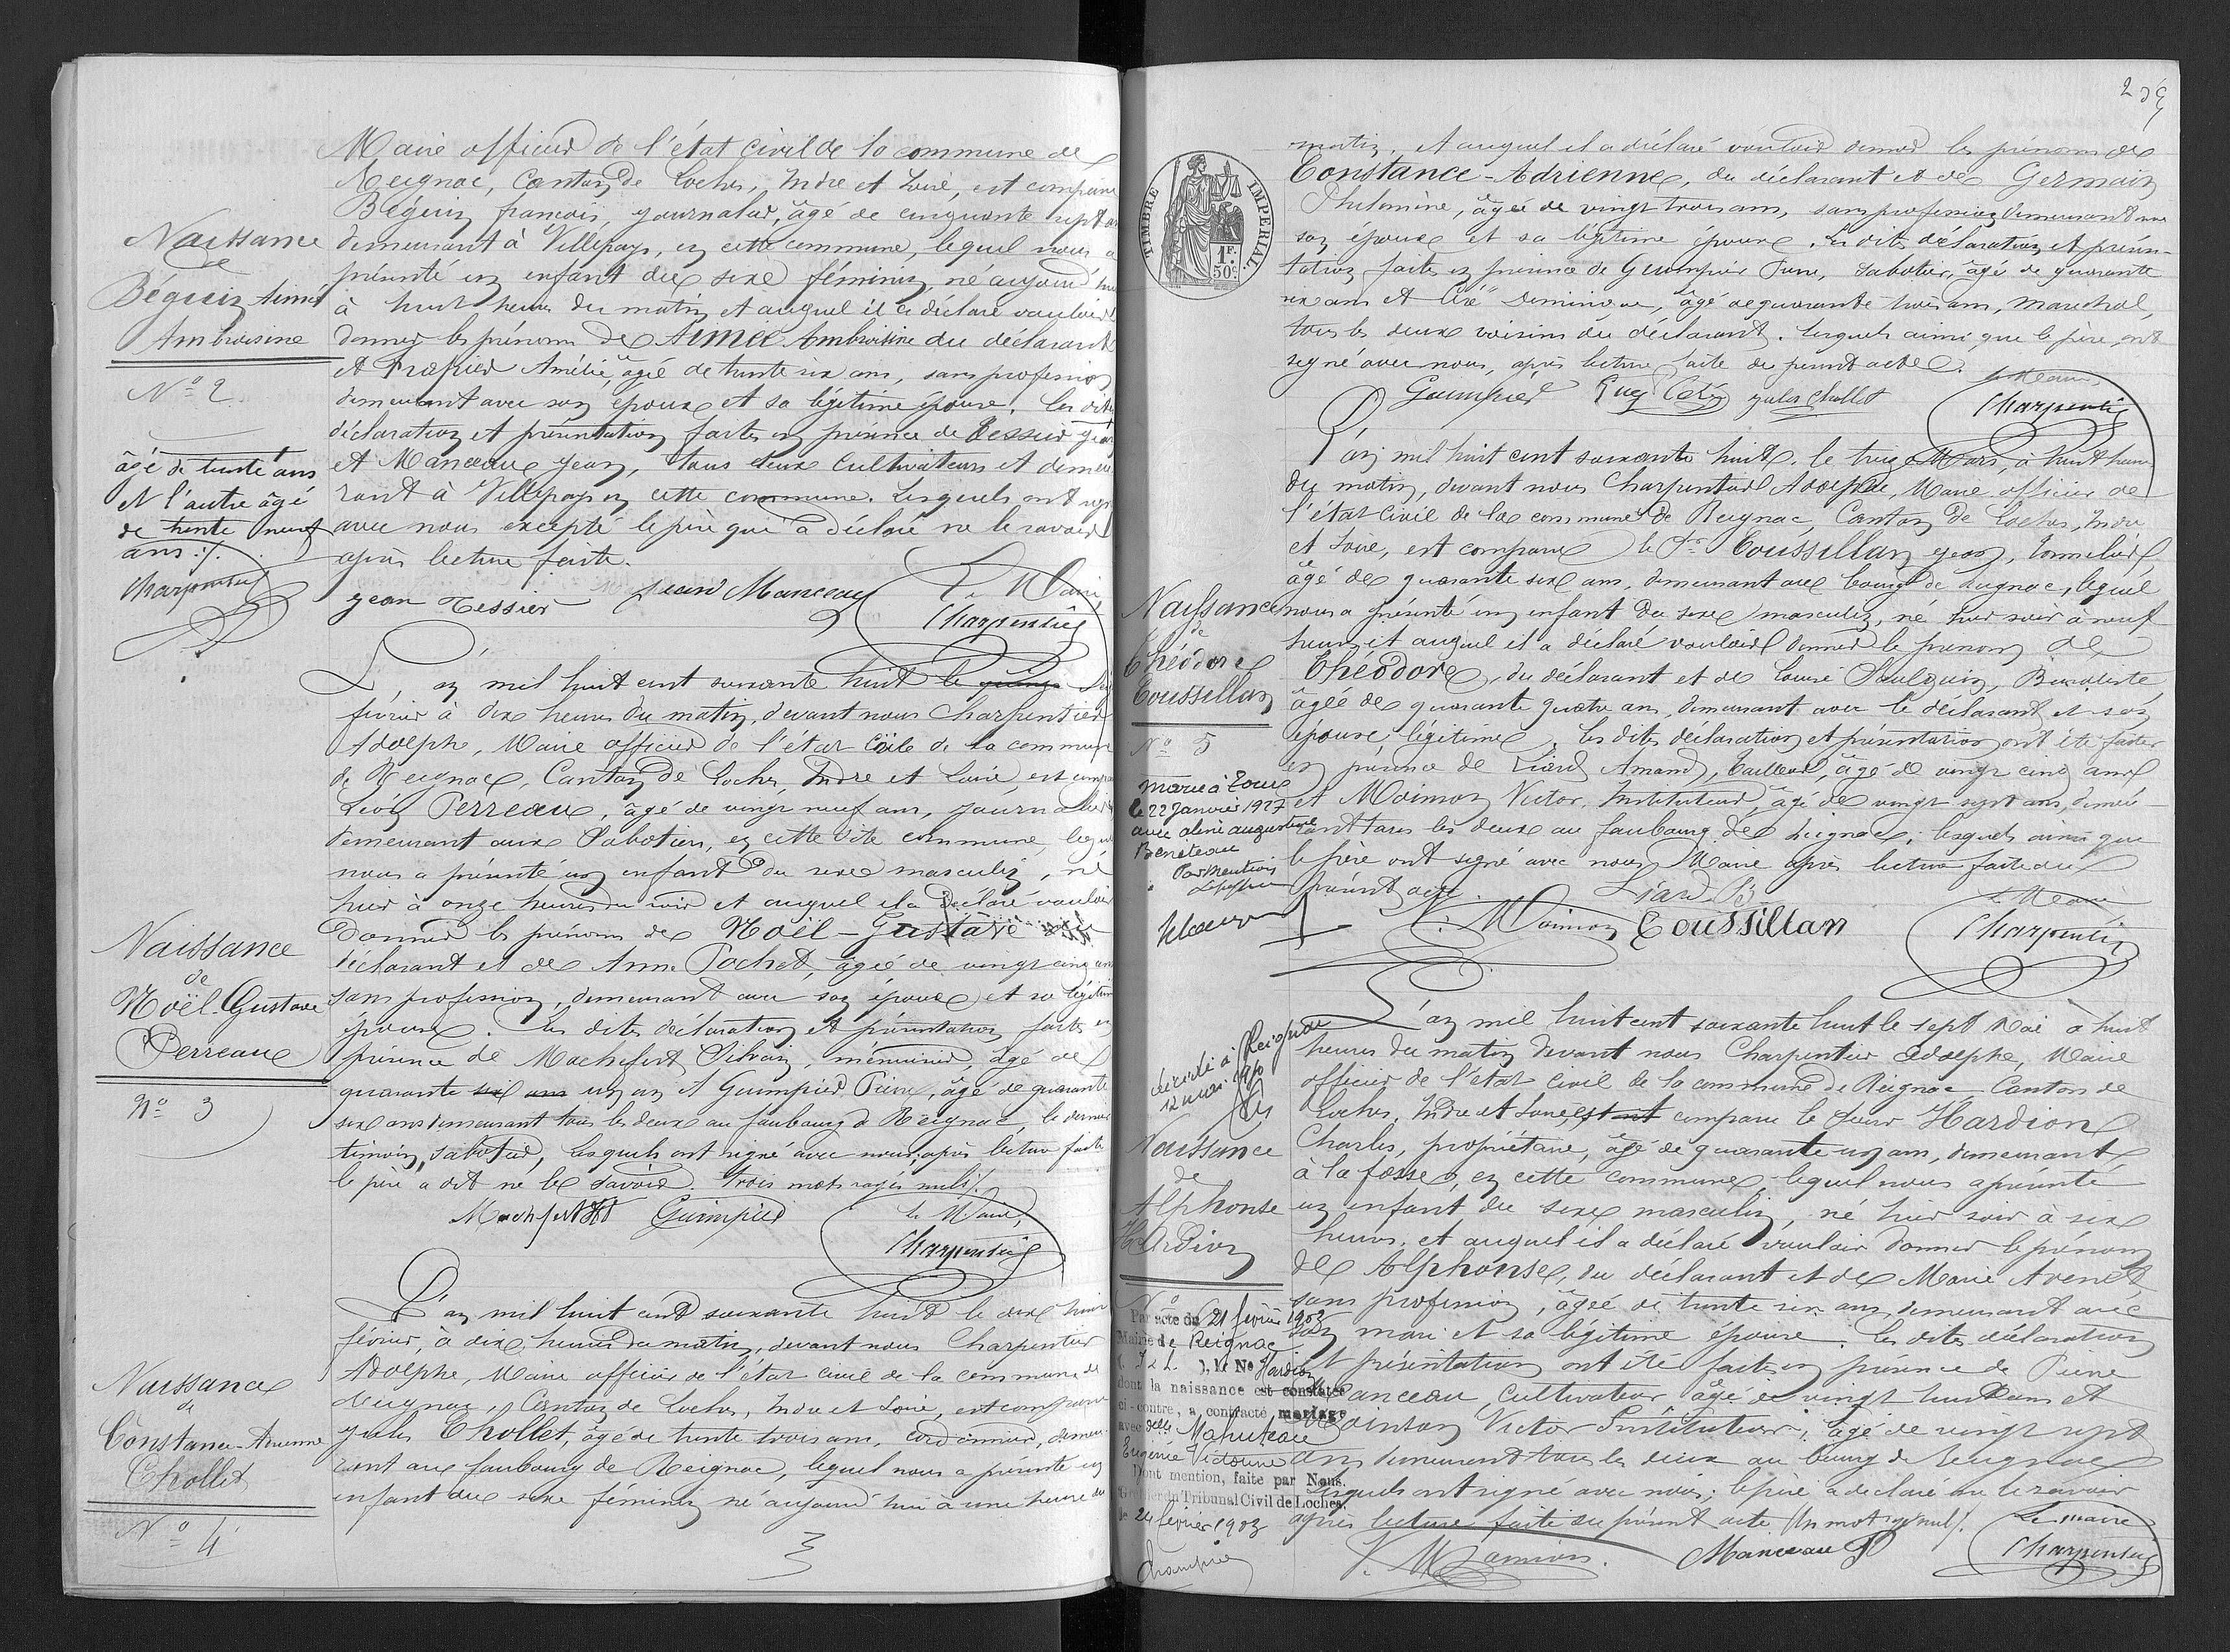 Maire officier de l'état civil de la commune de
Reignac, Canton de Loches, Indre et Loire, est comparu
Béguin françois, journalier, âgé de cinquante sept ans
demeurant à Villepays, en cette commune, lequel nous a
présenté un enfant du sexe féminin, né aujourd'hui
à huit heures du matin et auquel il a déclaré vouloir
donner les prénoms de Aimée Ambroisine du déclarant
et Amélie, âgée de trente six ans, sans profession
demeurant avec son époux et sa légitime épouse. Les dites
déclaration et présentation faites en présence de Tessier Jean
et Manceau Jean, tous deux cultivateurs et demeu
rant à Villepays en cette commune. Lesquels ont signé
avec nous excepté le père qui a déclaré ne le savoir
après lecture faite.
Jean Tessier Jean Manceau Le Maire,
Charpentier
Naissance
de
Béguin Aimée
Ambroisine
No 2
âgé de trente ans
et l'autre âgé
de trente neuf
ans ./.
Charpentier
L'an mil huit cent soixante huit le
février à dix heures du matin, devant nous Charpentier
Adolphe, Maire officier de l'état civile de la commune
de Reignac, Canton de Loches, Indre et Loire, est comparu
Léon Perreau, âgé de vingt neuf ans, journalier
demeurant aux Sabotiers, en cette dite commune, lequel
nous a présenté un enfant du sexe masculin, né
hier à onze heures du soir et auquel il a déclaré vouloir
donner les prénoms de Noël-Gustave
déclarant et de Anne Pochet, âgée de vingt cinq ans
sans profession, demeurant avec son époux et sa légitime
épouse. Les dites déclaration et présentation faites en
présence de Rochefort Silvain, menuisier, âgé de
quarante six ans un an et Guimpied Pierre, âgé de quarante
six ans demeurant tous les deux au faubourg de Reignac, le dernier
témoin, sabotier, lesquels ont signé avec nous, après lecture faite
le père a dit ne le savoir. Trois mots rayés nuls ./.
Guimpied le Maire,
Charpentier
Naissance
de
Noël-Gustave
Perreau
No 3
L'an mil huit cent soixante huit le dix huit
février, à dix heures du matin, devant nous Charpentier
Adolphe, Maire officier de l'état civil de la commune de
Reignac, Canton de Loches, Indre et Loire, est comparu
Jules Chollet, âgé de trente trois ans, cordonnier, demeu-
rant au faubourg de Reignac, lequel nous a présenté un
enfant du sexe féminin né aujourd'hui à une heure du
Naissance
de
Constance-Adrienne
Chollet
No 4
TIMBRE IMPERIAL
1F.
50c.
matin, et auquel il a déclaré vouloir donner les prénoms de
Constance-Adrienne, du déclarant et de Germain
Philomène, âgée de vingt trois ans, sans profession demeurant avec
son époux et sa légitime épouse. Les dites déclaration et présen-
tation faites en présence de Guimpied Pierre, sabotier, âgé de quarante
six ans et Cézé âgé de quarante trois ans, maréchal,
tous les deux voisins du déclarant. Lesquels ainsi que le père, ont
signé avec nous, après lecture faite du présent acte.
Guimpied Cézé Jules Chollet le Maire,
Charpentier
L'an mil huit cent soixante huit, le treize Mars, à huit heures
du matin, devant nous Charpentier Adolphe, Maire officier de
l'état civil de la commune de Reignac, Canton de Loches, Indre
et Loire, est comparu le Sr Coussillan Jean, tonnelier
âgé de quarante six ans, demeurant au bourg de Reignac, lequel
nous a présenté un enfant du sexe masculin, né hier soir à neuf
heures et auquel il a déclaré vouloir donner le prénom de
Théodore, du déclarant et de Louise Buraliste,
âgée de quarante quatre ans, demeurant avec le déclarant et son
épouse légitime. Les dites déclaration et présentation ont été faites
en présence de Liard Amand, tailleur, âgé de vingt cinq ans
et Moinson Victor, Instituteur, âgé de vingt sept ans, demeu-
rant tous les deux au faubourg de Reignac; lesquels ainsi que
le père ont signé avec nous Maire après lecture faite du
présent acte.
Liard V. Moinson Coussillan le Maire
Charpentier
Naissance
de
Théodore
Coussillan
No 5
Marié à Tours
le 22 Janvier 1927
avec Aline Augustine
Beneteau
Par mention
L'an mil huit cent soixante huit le sept Mai à huit
heures du matin devant nous Charpentier Adolphe, Maire
officier de l'état civil de la commune de Reignac Canton de
Loches, Indre et Loire, est comparu le sieur Hardion
Charles, propriétaire, âgé de quarante un ans, demeurant
à la fosse, en cette commune, lequel nous a présenté
un enfant du sexe masculin, né hier soir à six
heures, et auquel il a déclaré vouloir donner le prénom
de Alphonse, du déclarant et de Marie Avenet
sans profession, âgée de trente six ans, demeurant avec
son mari et sa légitime épouse. Les dites déclaration
et présentation ont été faites en présence de Pierre
Manceau, cultivateur âgé de vingt huit ans et
Moinson Victor Instituteur, âgé de vingt sept
ans demeurant tous les deux au bourg de Reignac
lesquels ont signé avec nous; le père a déclaré ne le savoir
après lecture faite du présent acte. Un mot rayé nul ./.
V. Moinson. Manceau P Le maire
Charpentier
décédé à Reignac
12 mai
Naissance
de
Alphonse
Hardion
No
Par acte du 21 février 1903
Mairie de Reignac
( I & L ), le No Hardion
dont la naissance est constatée
ci-contre, a contracté mariage
avec delle Mahuteau
Eugénie Victorine
Dont mention, faite par Nous,
Greffier du Tribunal Civil de Loches,
le 24 février 1903